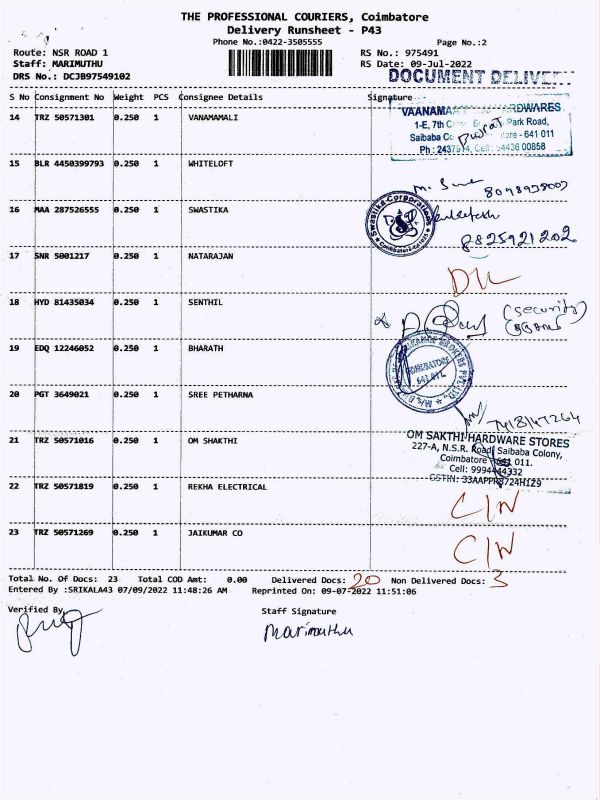 THE PROFESSIONAL COURIERS, Coimbatore
Delivery Runsheet - P43
Phone No.:0422-3505555 Page No.:2
Route: NSR ROAD 1 RS No.: 975491
Staff: MARIMUTHU RS Date: 09-Jul-2022
DRS No.: DCJB97549102 DOCUMENT DELIVE
S No Consignment No Weight PCS Consignee Details Signature
14 TRZ 50571301 0.250 1 VANAMAMALI
VAANAMA RDWARES
1-E, 7th Park Road,
Saibaba Co ore - 641 011
Ph: 2437 4, Cell: 94436 00858
15 BLR 4450399793 0.250 1 WHITELOFT
16 MAA 287526555 0.250 1 SWASTIKA
Swastika Corporation
8825921202
17 SNR 5001217 0.250 1 NATARAJAN
DL
18 HYD 81435034 0.250 1 SENTHIL
(security)
19 EDQ 12246052 0.250 1 BHARATH
COIMBATORE
20 PGT 3649021 0.250 1 SREE PETHARNA
21 TRZ 50571016 0.250 1 OM SHAKTHI
OM SAKTHI HARDWARE STORES
227-A, N.S.R. Road, Saibaba Colony,
Coimbatore - 641 011.
Cell: 9994444332
22 TRZ 50571819 0.250 1 REKHA ELECTRICAL
C/N
23 TRZ 50571269 0.250 1 JAIKUMAR CO
C/N
Total No. Of Docs: 23 Total COD Amt: 0.00 Delivered Docs: 20 Non Delivered Docs: 3
Entered By :SRIKALA43 07/09/2022 11:48:26 AM Reprinted On: 09-07-2022 11:51:06
Verified By Staff Signature
Marimuthu